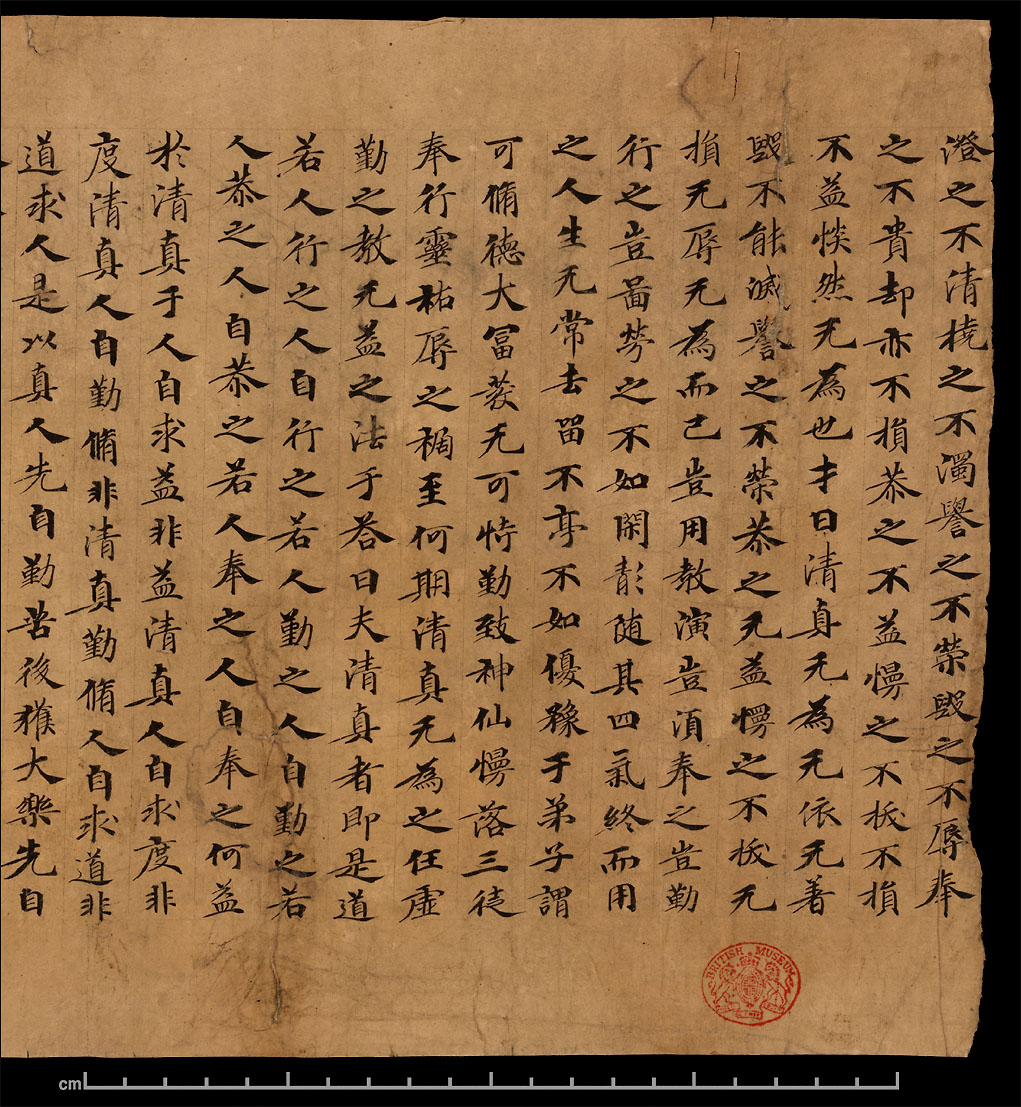 澄之不清撓之不濁譽之不榮毀之不辱奉
之不貴却亦不損恭之不益慢之不抵不損
不益惔然无為也才曰清真无為无依无著
毀不能滅譽之不榮恭之无益慢之不抵无
損无辱无為而已豈用教演豈須奉之豈勤
行之豈啚勞之不如閑彰随其四氣終而用
之人生无常去留不亭不如優豫于弟子謂
可脩德大冨袯无可恃勤致神仙慢落三徒
奉行靈祐辱之禍至何期清真无為之任虛
勤之教无益之法于荅曰夫清真者即是道
若人行之人自行之若人勤之人自勤之若
人恭之人自恭之若人奉之人自奉之何益
於清真于人自求益非益清真人自求度非
度清真人自勤脩非清真勤脩人自求道非
道求人是以真人先自勤苦後獲大樂先自
BRITISH MUSEUM
cm